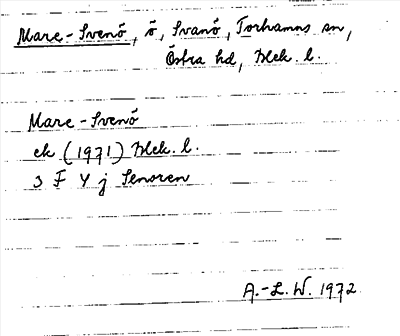 Mare-Svenö, ö, Svanö, Torhamns sn,
Östra hd, Blek. l.
Mare-Svenö
ek (1971) Blek. l.
3 F Y j Senoren
A.-L.W. 1972